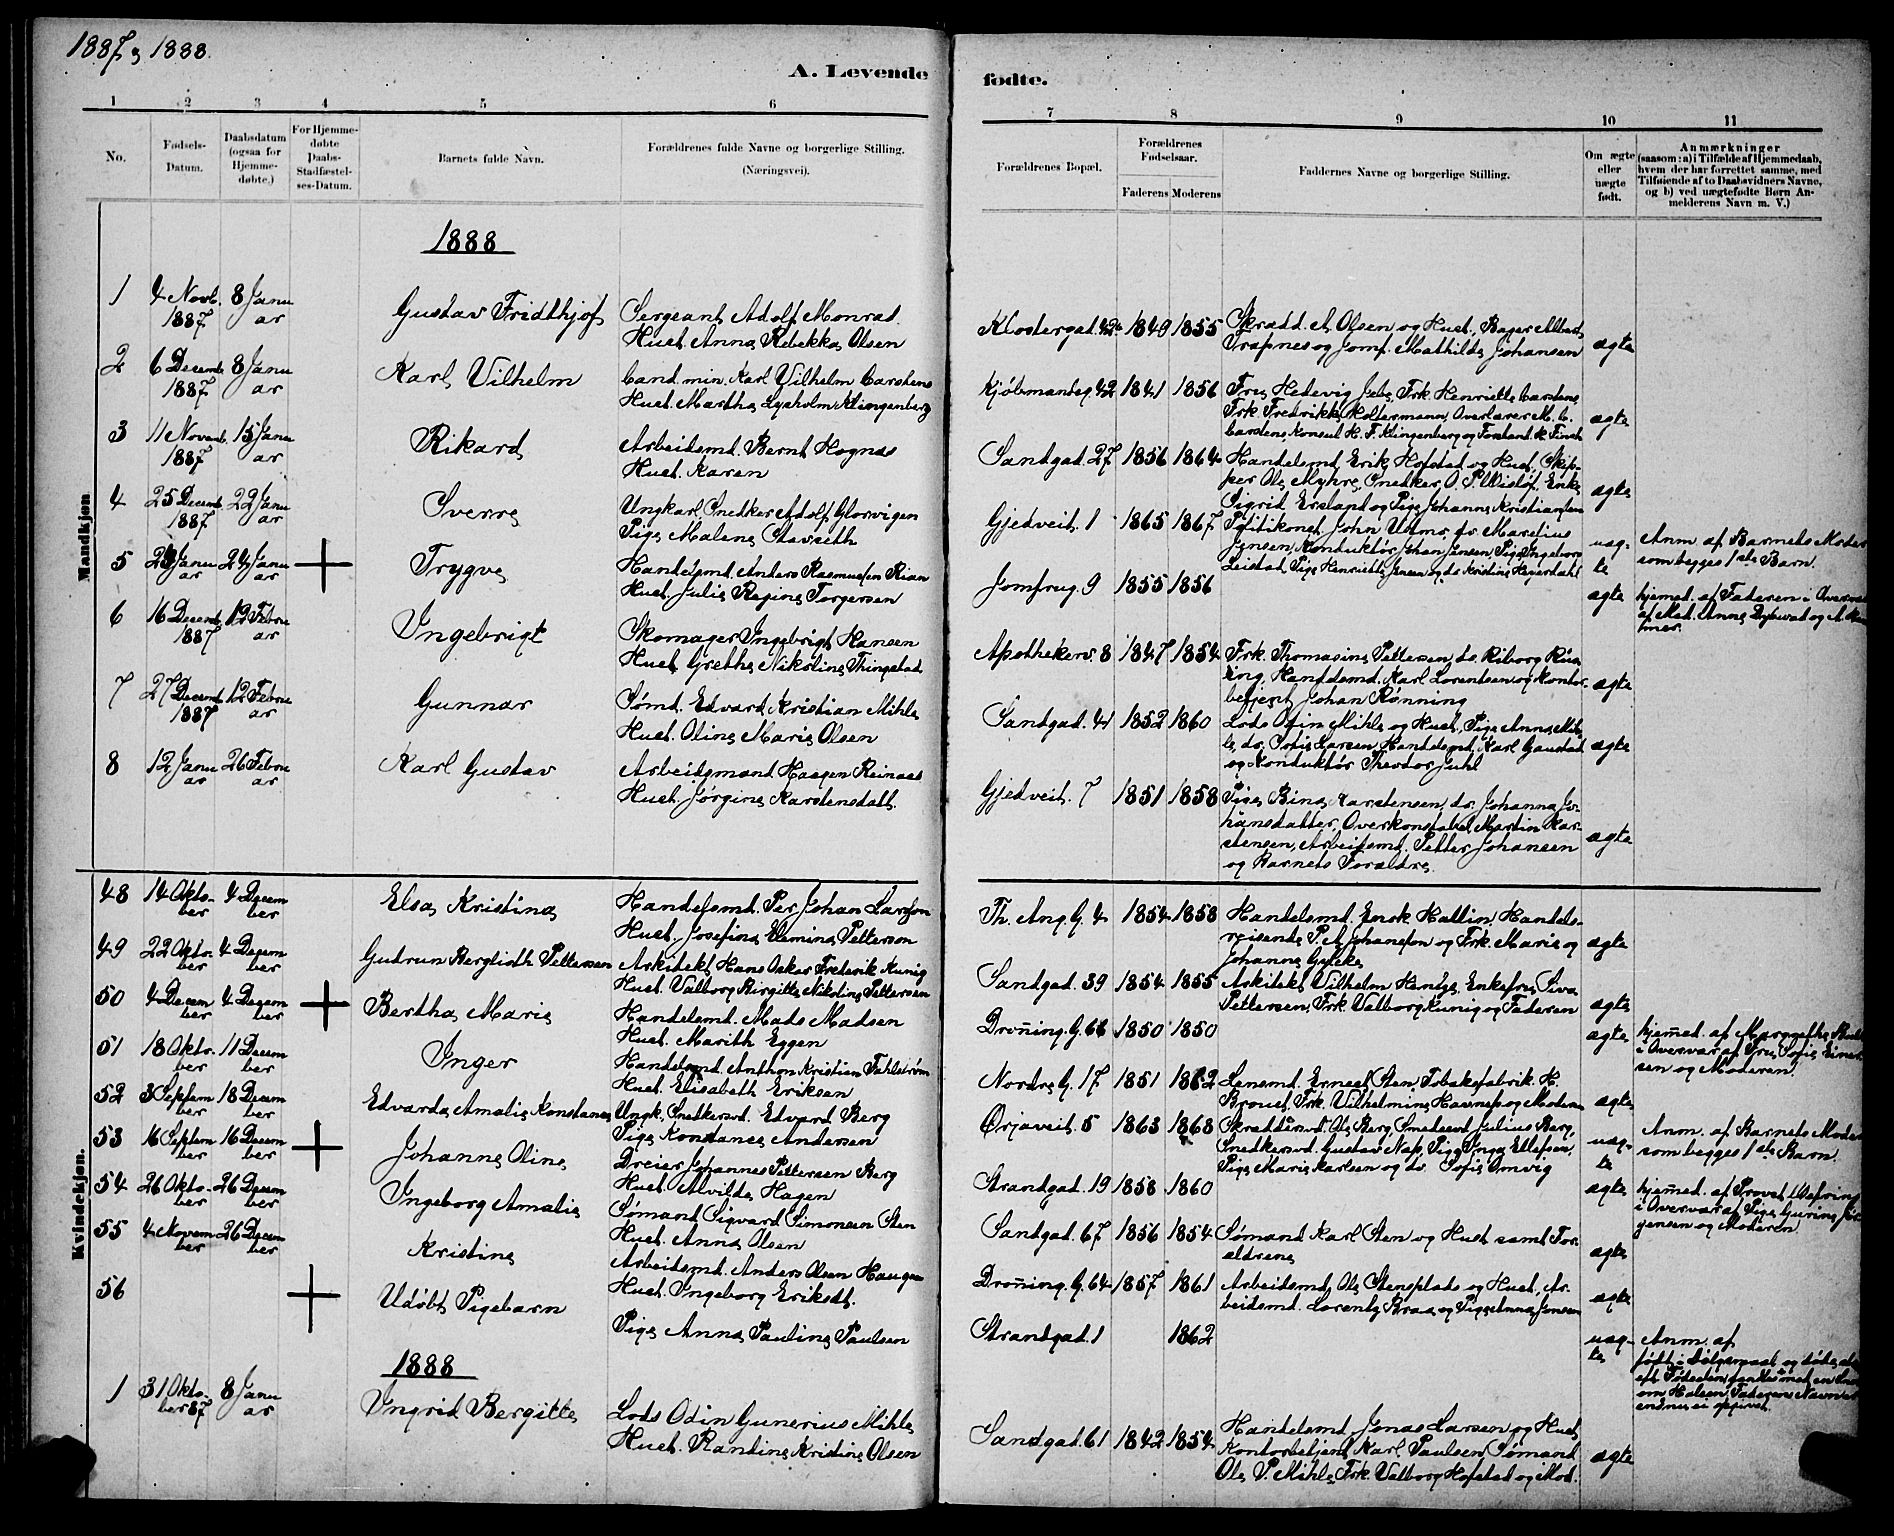 1887 og 1888.
A. Levende
fødte.
1 2 3 4 5 6
7 8 9 10 11
No.
Fødsels-
Datum.
Daabsdatum
(ogsaa for
Hjemme-
døbte.)
For Hjemme-
døbte
Daabs-
Stadfæstel-
ses-Datum.
Barnets fulde Navn.
Forældrenes fulde Navne og borgerlige Stilling.
(Næringsvei).
Forældrenes Bopæl.
Forældrenes
Fødselsaar.
Faderens Moderens
Faddernes Navne og borgerlige Stilling.
Om ægte
eller
uægte
født.
Anmærkninger
(saasom: a) i Tilfælde af Hjemmedaab,
hvem der har forrettet samme, med
Tilføiende af to Daabsvidners Navne,
og b) ved uægtefødte Børn An-
melderens Navn m. V.)
Mandkjøn
1888
1 4 Novb. 8 Janu
1887 ar
Gustav Fridthjof
Sergeant Adolf Monrad
Hust. Anna Rebekka Olsen
Klostergad. 42 1849 1855
Skrædd. A. Olsen og Hust., Bager Albert
Trapnes og Jomf. Mathilde Johansen
ægte
2 6 Decemb 8 Janu
1887 ar
Karl Vilhelm
Cand. min. Karl Vilhelm Carstens
Hust. Martha Lysholm Klingenberg
Kjøbmandsg. 42 1841 1856
Fru Hedevig Jebe, Frk. Henriette Carstens
Frk. Fredrikke Holtermann, Overlærer M. C.
Carstens, Konsul H. F. Klingenberg og Forstand. K. Finch
ægte
3 11 Novemb. 15 Janu
1887 ar
Rikard
Arbeidsmd. Bernt Hognæs
Hust. Karen
Sandgad. 27 1856 1864
Handelsmd. Erik Hofstad og Hust., Skip-
per Ole Myhre, Snedker O. P. Wisløf, Enke
Sigrid Ersland og Pige Johanna Kristiansen
ægte
4 25 Decemb 22 Janu
1887 ar
Sverre
Ungkarl Snedker Adolf Glorvigen
Pige Malene Stavseth
Gjedveit. 1 1865 1867
Politikonst. John Utmo, do. Marelius
Jensen, Konduktør Johan Jensen, Pige Ingeborg
Leistad, Pige Henriette Jensen og do Kristine Heverdahl
uæg-
te
Anm. af Barnets Moder
som begges 1ste Barn.
5 24 Janu 24 Janu
ar ar
Trygve
Handelsmd. Anders Rasmussen Rian
Hust. Julie Regine Torgersen
Jomfrug. 9 1855 1856
ægte
hjemd. af Faderen i Overvær
af Mad. Anne
6 16 Decemb 12 Febru
1887 ar
Ingebrigt
Skomager Ingebrigt Hansen
Hust. Grethe Nikoline Thingstad
Apothekerv. 8 1847 1854
Frk. Thomasine Pettersen, do. Riborg Rise
Eng, Handelsmd. Karl Lorentsen og Kontor-
betjent Johan Rønning
ægte
7 27 Decemb 12 Febru
1887 ar
Gunnar
Sømd. Edvard Kristian Mihle
Hust. Oline Marie Olsen
Sandgad. 41 1852 1860
Lods Odin Mihle og Hust., Pige Anna Mih-
le, do. Sofie Larsen, Handelsmd. Karl Gaustad
og Konduktør Theodor Juhl
ægte
8 12 Janu 26 Febru
ar ar
Karl Gustav
Arbeidsmand Haagen Reinaas
Hust. Jørgine Karstensdatt.
Gjedveit. 7 1851 1858
Pige Bina Karstensen, do. Johanna Jo-
hansdatter, Overkonstabel Martin Kar-
stensen, Arbeidsmd. Petter Johansen
og Barnets Forældre.
ægte
Kvindekjøn.
48 14 Okto- 4 Decem
ber ber
Elsa Kristina
Handelsmd. Per Johan Larsson
Hust. Josefina Elemina Petterson
Th. Ang. G. 4 1854 1858
Handelsmd. Enok Hallin, Handels-
reisende P. A. Johanson og Frk. Marie og
Johanna Gylche
ægte
49 22 Okto- 4 Decem
ber ber
Gudrun Berglioth Pettersen
Arkitekt Hans Oskar Frederik Kunig
Hust. Valborg Birgitte Nikoline Pettersen
Sandgad. 39 1854 1855
Arkitekt Vilhelm Hentze, Enkefru Siva
Pettersen, Frk. Valborg Kunig og Faderen
ægte
50 4 Decem 4 Decem
ber ber
Bertha Marie
Handelsmd. Mads Madsen
Hust. Marith Eggen
Droning. G. 66 1850 1850
ægte
hjemd. af
i Overvær af Fru Sofie Einer-
sen og Moderen.
51 18 Okto- 11 Decem
ber ber
Inger
Handelsmd. Anthon Kristian Fahlstrøm
Hust. Elisabeth Eriksen
Nordre G. 17 1851 1862
Lensmd. Ernest Sten, Tobaksfabrik. H.
Broust, Frk. Vilhelmine Havnes og Moderen
ægte
52 3 Septem 18 Decem
ber ber
Edvarda Amalie Konstance
Ungk. Snedkersvd. Edvard Berg
Pige Konstance Andersen
Ørjaveit. 5 1863 1868
Skræddersvd. Ole Berg, Smedsvd. Julius Berg,
Snedkersvd. Gustav Næs, Pige Inga Ellefsen,
Pige Marie Karlsen og do. Sofie Omvig
uæg-
te
Anm. af Barnets Moder
som begges 1ste Barn.
53 16 Septem 16 Decem
ber ber
Johanne Oline
Dreier Johannes Pettersen Berg
Hust. Alvilde Hagen
Strandgad. 19 1858 1860
ægte
hjemd. af Provst
i Overvær af Pige Guring Jør-
gensen og Moderen.
54 26 Okto- 26 Decem
ber ber
Ingeborg Amalie
Sømand Sigvard Simonsen Sten
Hust. Anna Olsen
Sandgad. 67 1856 1854
Sømand Karl Sten og Hust samt For-
ældrene
ægte
55 4 Novem 26 Decem
ber ber
Kristine
Arbeidsmd. Anders Olsen Haugen
Hust. Ingeborg Eriksdt.
Droning. G. 64 1857 1861
Arbeidsmd. Ole Stensplads og Hust., Ar-
beidsmd. Lorents Braa og Pige Anna Jensen
ægte
56
Udøbt Pigebarn
Pige Anna Pauline Paulsen
Strandgad. 1 1862
uæg-
te
Anm. af
født i Dølgsmaal og døde
1888
1 31 Okto- 8 Janu
ber 87 ar
Ingrid Bergitte
Lods Odin Gunerius Mihle
Hust. Randine Kristine Olsen
Sandgad. 61 1842 1854
Handelsmd. Jonas Larsen og Hust,
Kontorbetjent Karl Paulsen, Sømand
Ole P. Mihle, Frk. Valborg Hofstad og Mod.
ægte